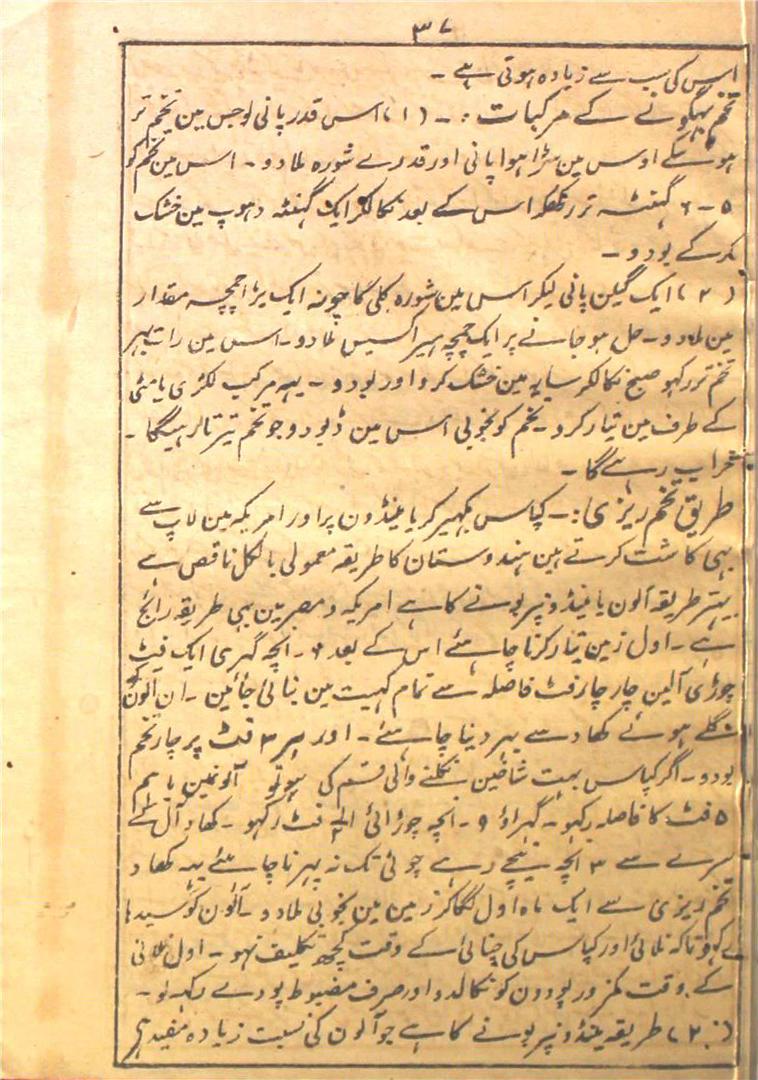 ۳۷
اس کی سب سے زیادہ ہوتی ہے ۔
تخم بہگونے کے مرکبات :۔ (۱) اس قدر پانی لو جس مین تخم تر
ہو سکے اوس مین سڑا ہوا پانی اور قدرے شورہ ملا دو ۔ اس مین تخم کو
۵ ۔ ۶ گہنٹہ تر رکھکر اس کے بعد نکالکر ایک گہنٹہ دہوپ مین خشک
کرکے بو دو ۔
(۲) ایک گیلن پانی لیکر اس مین شورہ کلی کا چونہ ایک بڑا چمچہ مقدار
مین ملا دو ۔ حل ہو جانے پر ایک چمچہ ہیرا کسیس ملا دو ۔ اس مین رات بہر
تخم تر رکہو صبح نکالکر سایہ مین خشک کرو اور بو دو ۔ یہہ مرکب لکڑی یا مٹی
کے ظرف مین تیار کرو ۔ تخم کو بخوبی اس مین ڈبو دو جو تخم تیرتا رہیگا ۔
خراب رہے گا ۔
طریق تخم ریزی :۔ کپاس بکہیر کر یا مینڈون پر اور امریکہ مین لاپ سے
بہی کاشت کرتے ہین ہندوستان کا طریقہ معمولی بالکل ناقص ہے
بہتر طریقہ آلون یا مینڈونپر بونے کا ہے امریکہ و مصر مین یہی طریقہ رائج
ہے ۔ اول زمین تیار کرنا چاہئے اس کے بعد ۶ ۔ انچہ گہری ایک فیٹ
چوڑی آلین چار چار فٹ فاصلہ سے تمام کہیت مین بنائی جائین ۔ ان آلون کو
گلے ہوئے کھاد سے بہر دینا چاہئے ۔ اور ہر ۳ فٹ پر چار تخم
بو دو ۔ اگر کپاس بہت شاخین نکلنے والی قسم کی ہو تو آلونمین باہم
۵ فٹ کا فاصلہ رکہو ۔ گہراؤ ۹ ۔ انچہ چوڑائی فٹ رکہو ۔ کھاد آل کے
سرے سے ۳ انچہ نیچے رہے چوٹی تک نہ بہرنا چاہئے یہہ کھاد
تخم ریزی سے ایک ماہ اول لگا کر زمین مین بخوبی ملا دو ۔ آلون کو سیدہا
رکہو تاکہ نلائی اور کپاس کی چنائی کے وقت کچھ تکلیف نہو ۔ اول نلائی
کے وقت کمزور پودون کو نکالدو اور صرف مضبوط پودے رکہہ لو ۔
(۲) طریقہ مینڈونپر بونے کا ہے جو آلون کی نسبت زیادہ مفید ہے